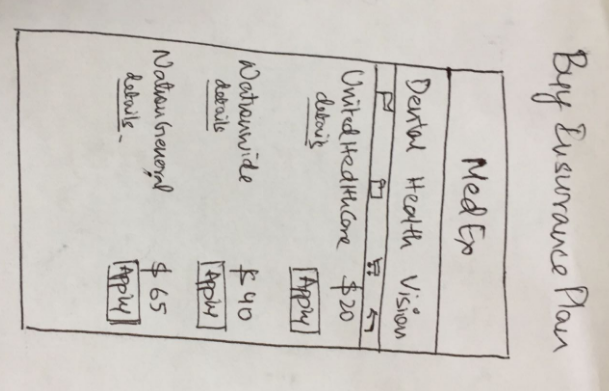 Buy Insurance Plan
MedEx
Dental Health Vision
UnitedHealthCare $20
details Apply
Nationwide $40
details Apply
NationGeneral $65
details Apply